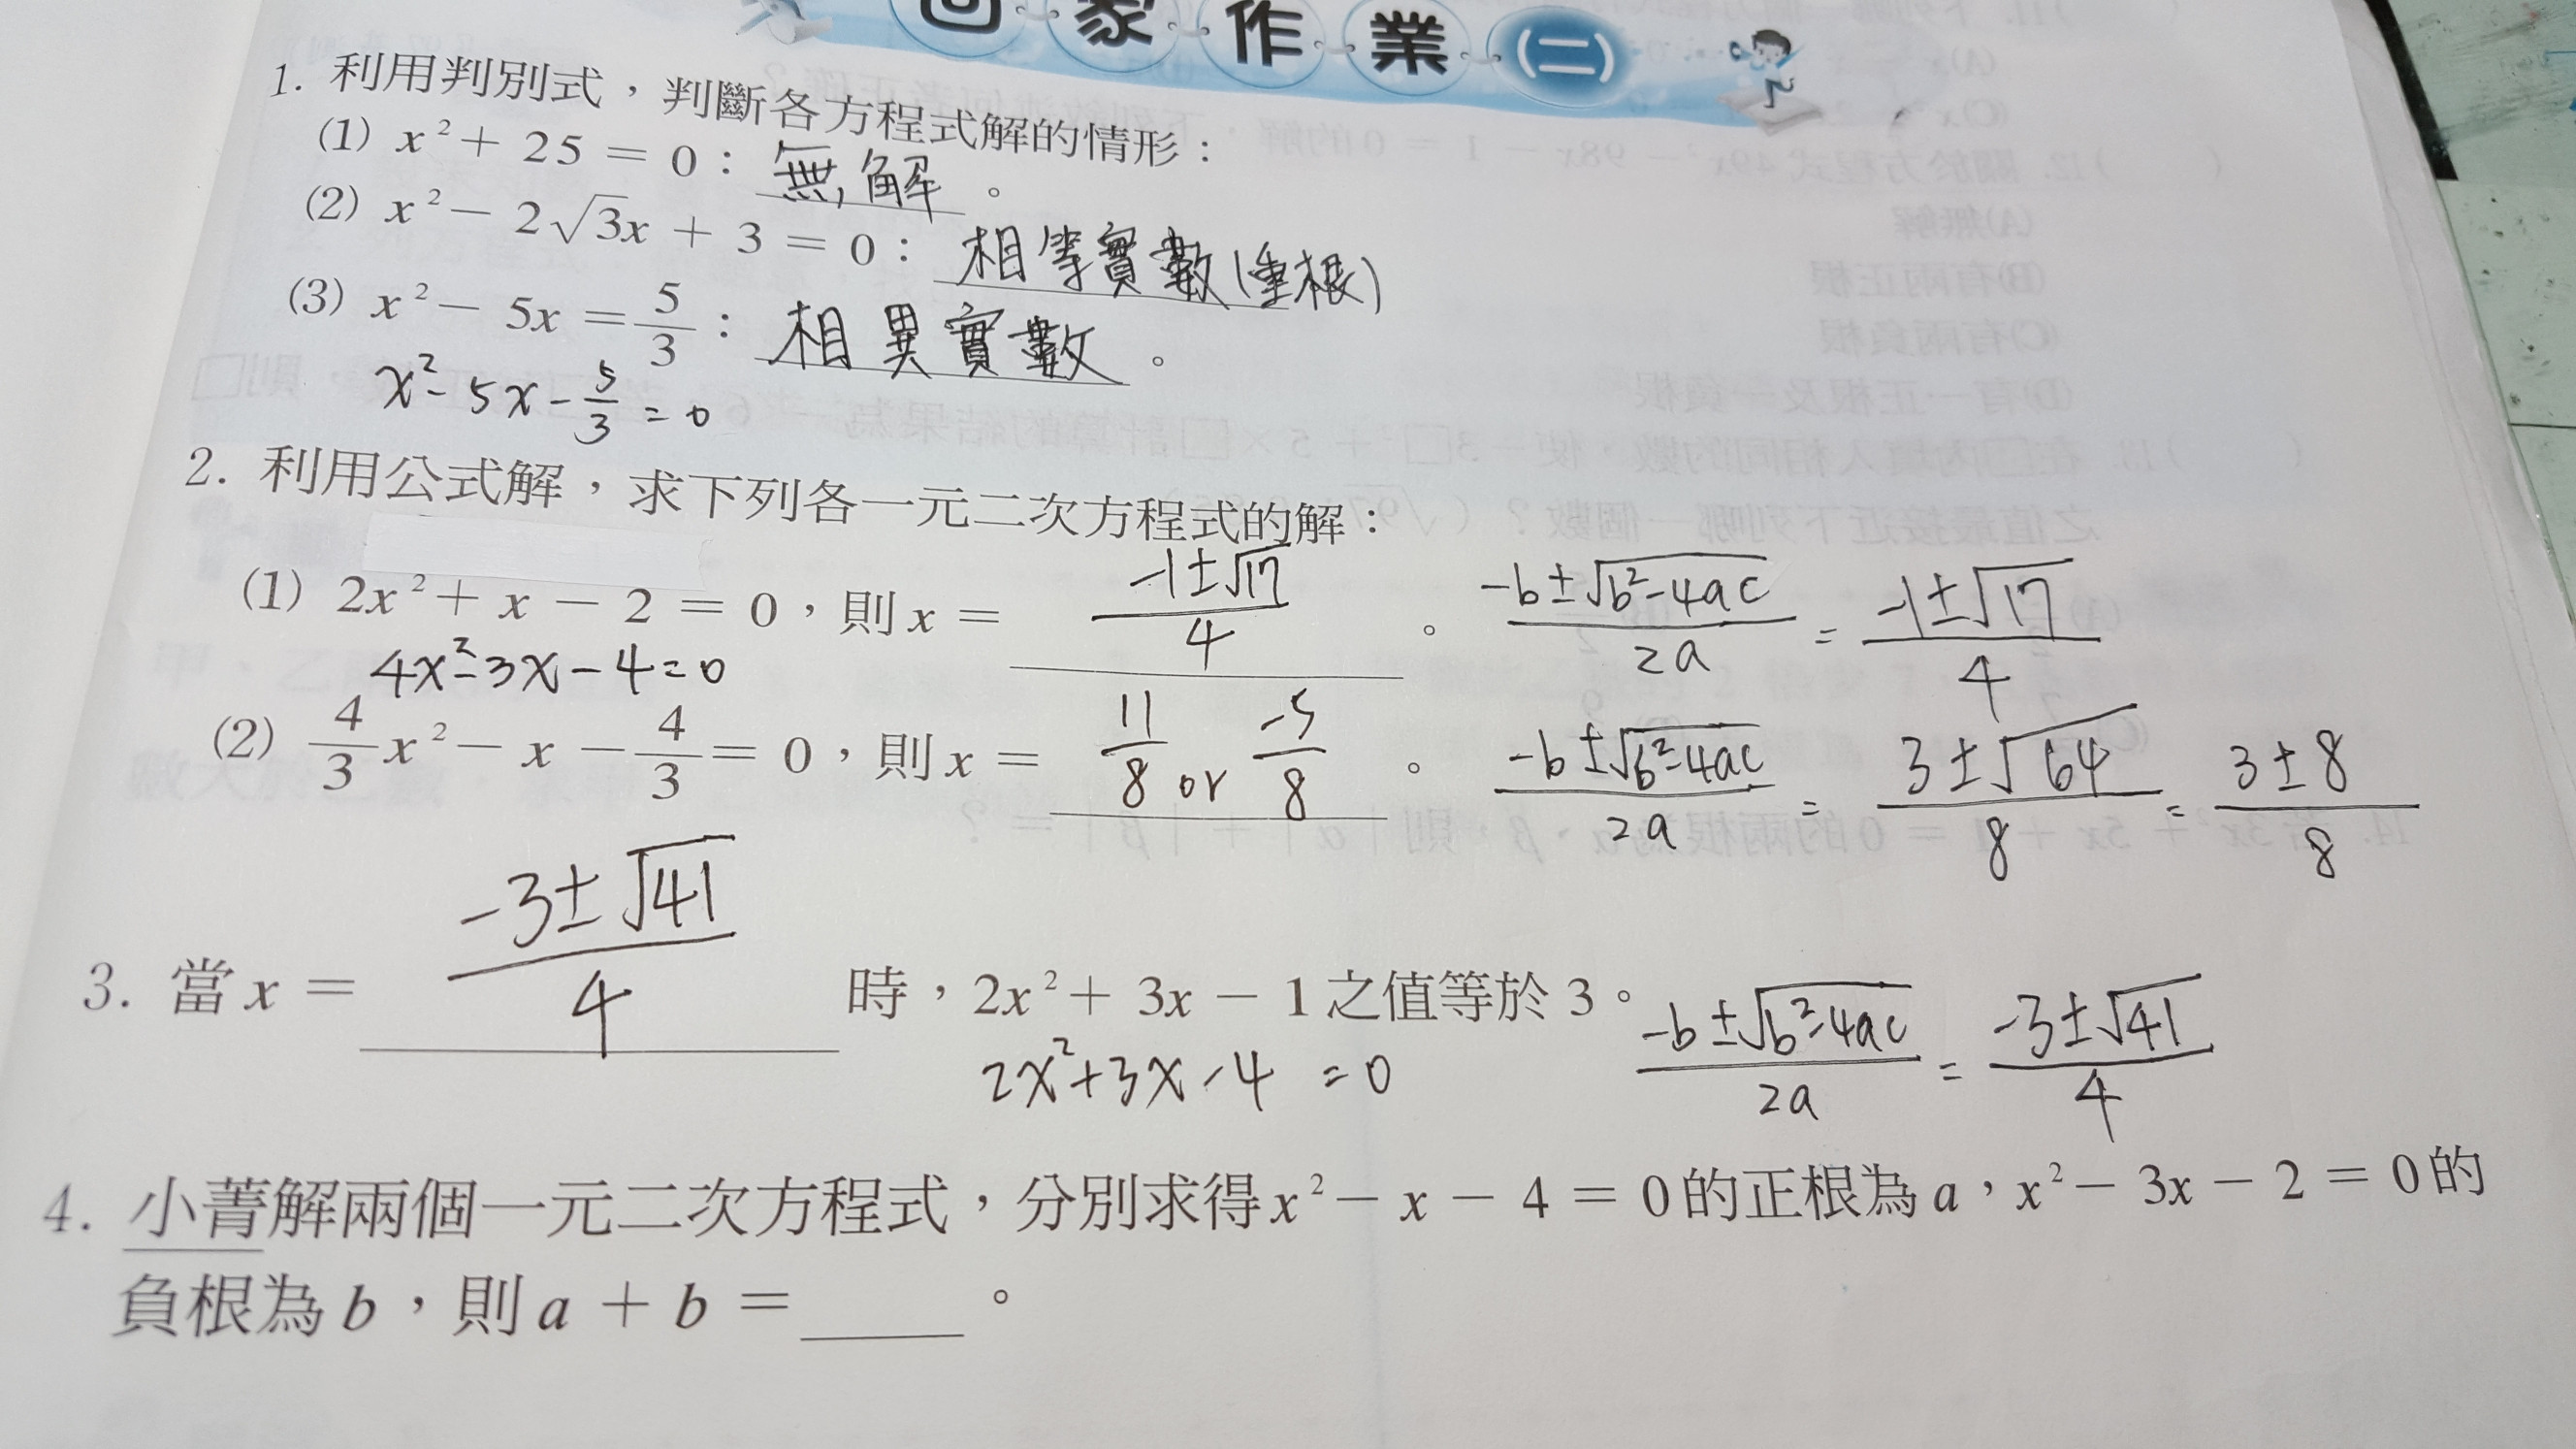 回家作業(二)
1. 利用判別式，判斷各方程式解的情形：
(1) x² + 25 = 0：無解。
(2) x² − 2√3x + 3 = 0：相等實數(重根)
(3) x² − 5x = 5/3：相異實數。
x² − 5x − 5/3 = 0
2. 利用公式解，求下列各一元二次方程式的解：
(1) 2x² + x − 2 = 0，則 x = (−1±√17)/4。 (−b±√(b²−4ac))/2a = (−1±√17)/4
4x² − 3x − 4 = 0
(2) 4/3 x² − x − 4/3 = 0，則 x = 11/8 or −5/8。 (−b±√(b²−4ac))/2a = (3±√64)/8 = (3±8)/8
3. 當 x = (−3±√41)/4 時，2x² + 3x − 1 之值等於 3。
2x² + 3x − 4 = 0 (−b±√(b²−4ac))/2a = (−3±√41)/4
4. 小菁解兩個一元二次方程式，分別求得 x² − x − 4 = 0 的正根為 a，x² − 3x − 2 = 0 的
負根為 b，則 a + b = ____。